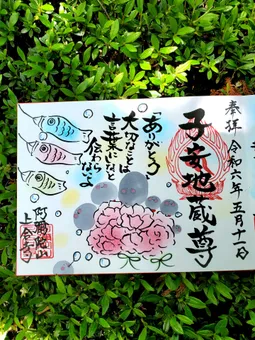 奉拝
令和六年五月十一日
子安地蔵尊
「ありがとう」
大切なことは
言葉にしないと
伝わらないよ